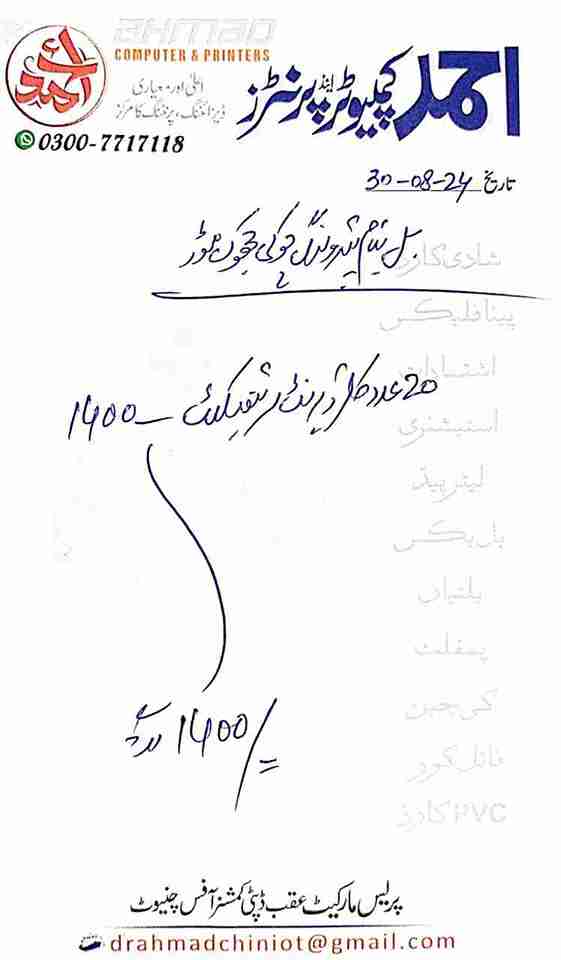 AHMAD
COMPUTER & PRINTERS
احمد
اعلیٰ اور معیاری
ڈیزائننگ، پرنٹنگ کا مرکز
0300-7717118
احمد کمپیوٹر اینڈ پرنٹرز
تاریخ 30-08-24
بل بنام پٹرولنگ چوکی
شادی کارڈ
پینا فلیکس
اشتہارات
20 عدد کلر پرنٹ سرٹیفکیٹ — 1400
اسٹیشنری
لیٹر پیڈ
بل بکس
بلٹیاں
پمفلٹ
کی چین
1400/=
فائل کور
PVC کارڈ
پریس مارکیٹ عقب ڈپٹی کمشنر آفس چنیوٹ
drahmadchiniot@gmail.com